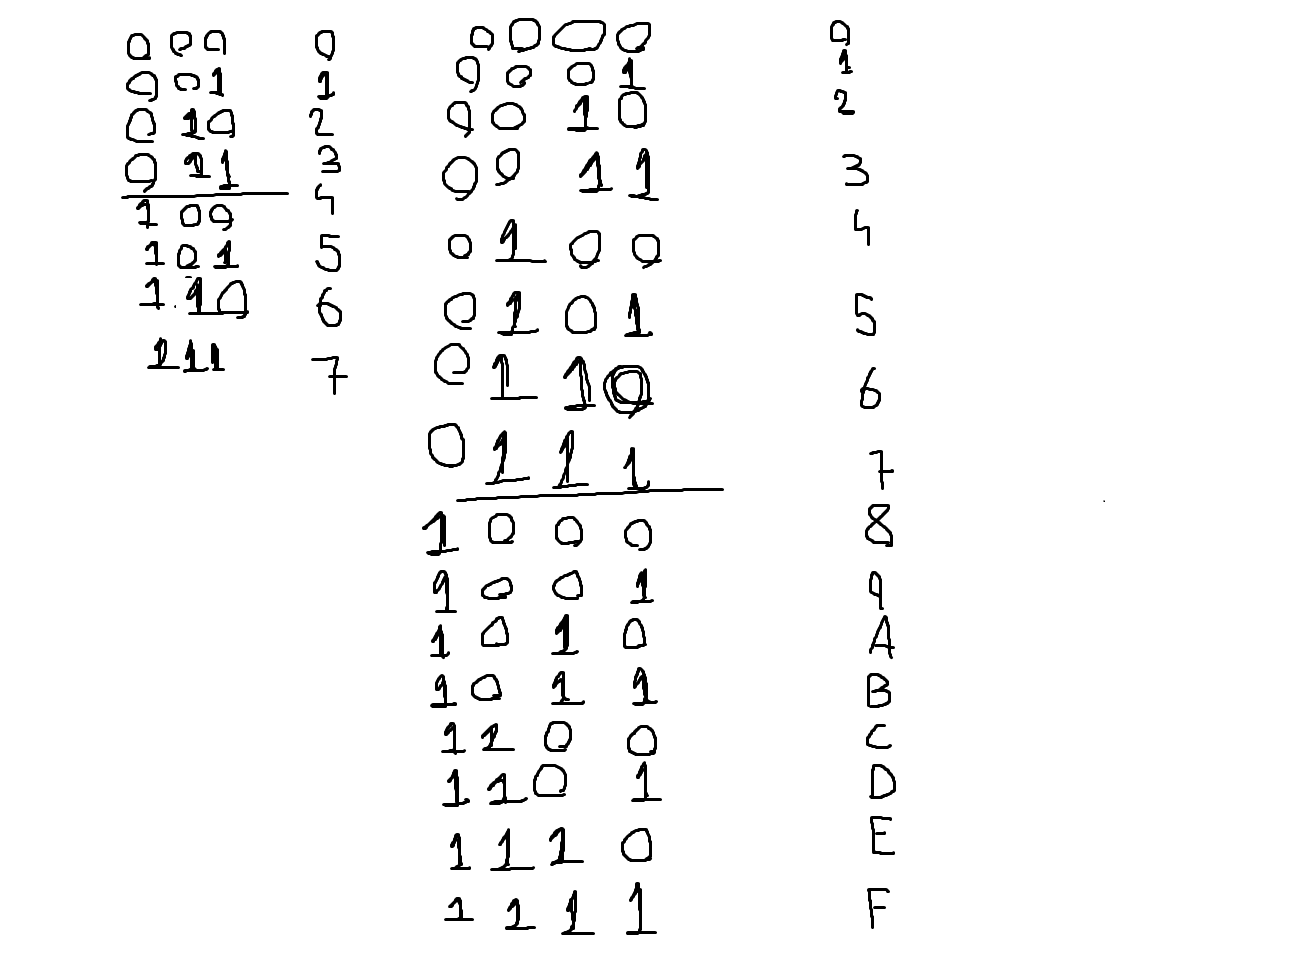 000 0
001 1
010 2
011 3
100 4
101 5
110 6
111 7
0000 0
0001 1
0010 2
0011 3
0100 4
0101 5
0110 6
0111 7
1000 8
1001 9
1010 A
1011 B
1100 C
1101 D
1110 E
1111 F